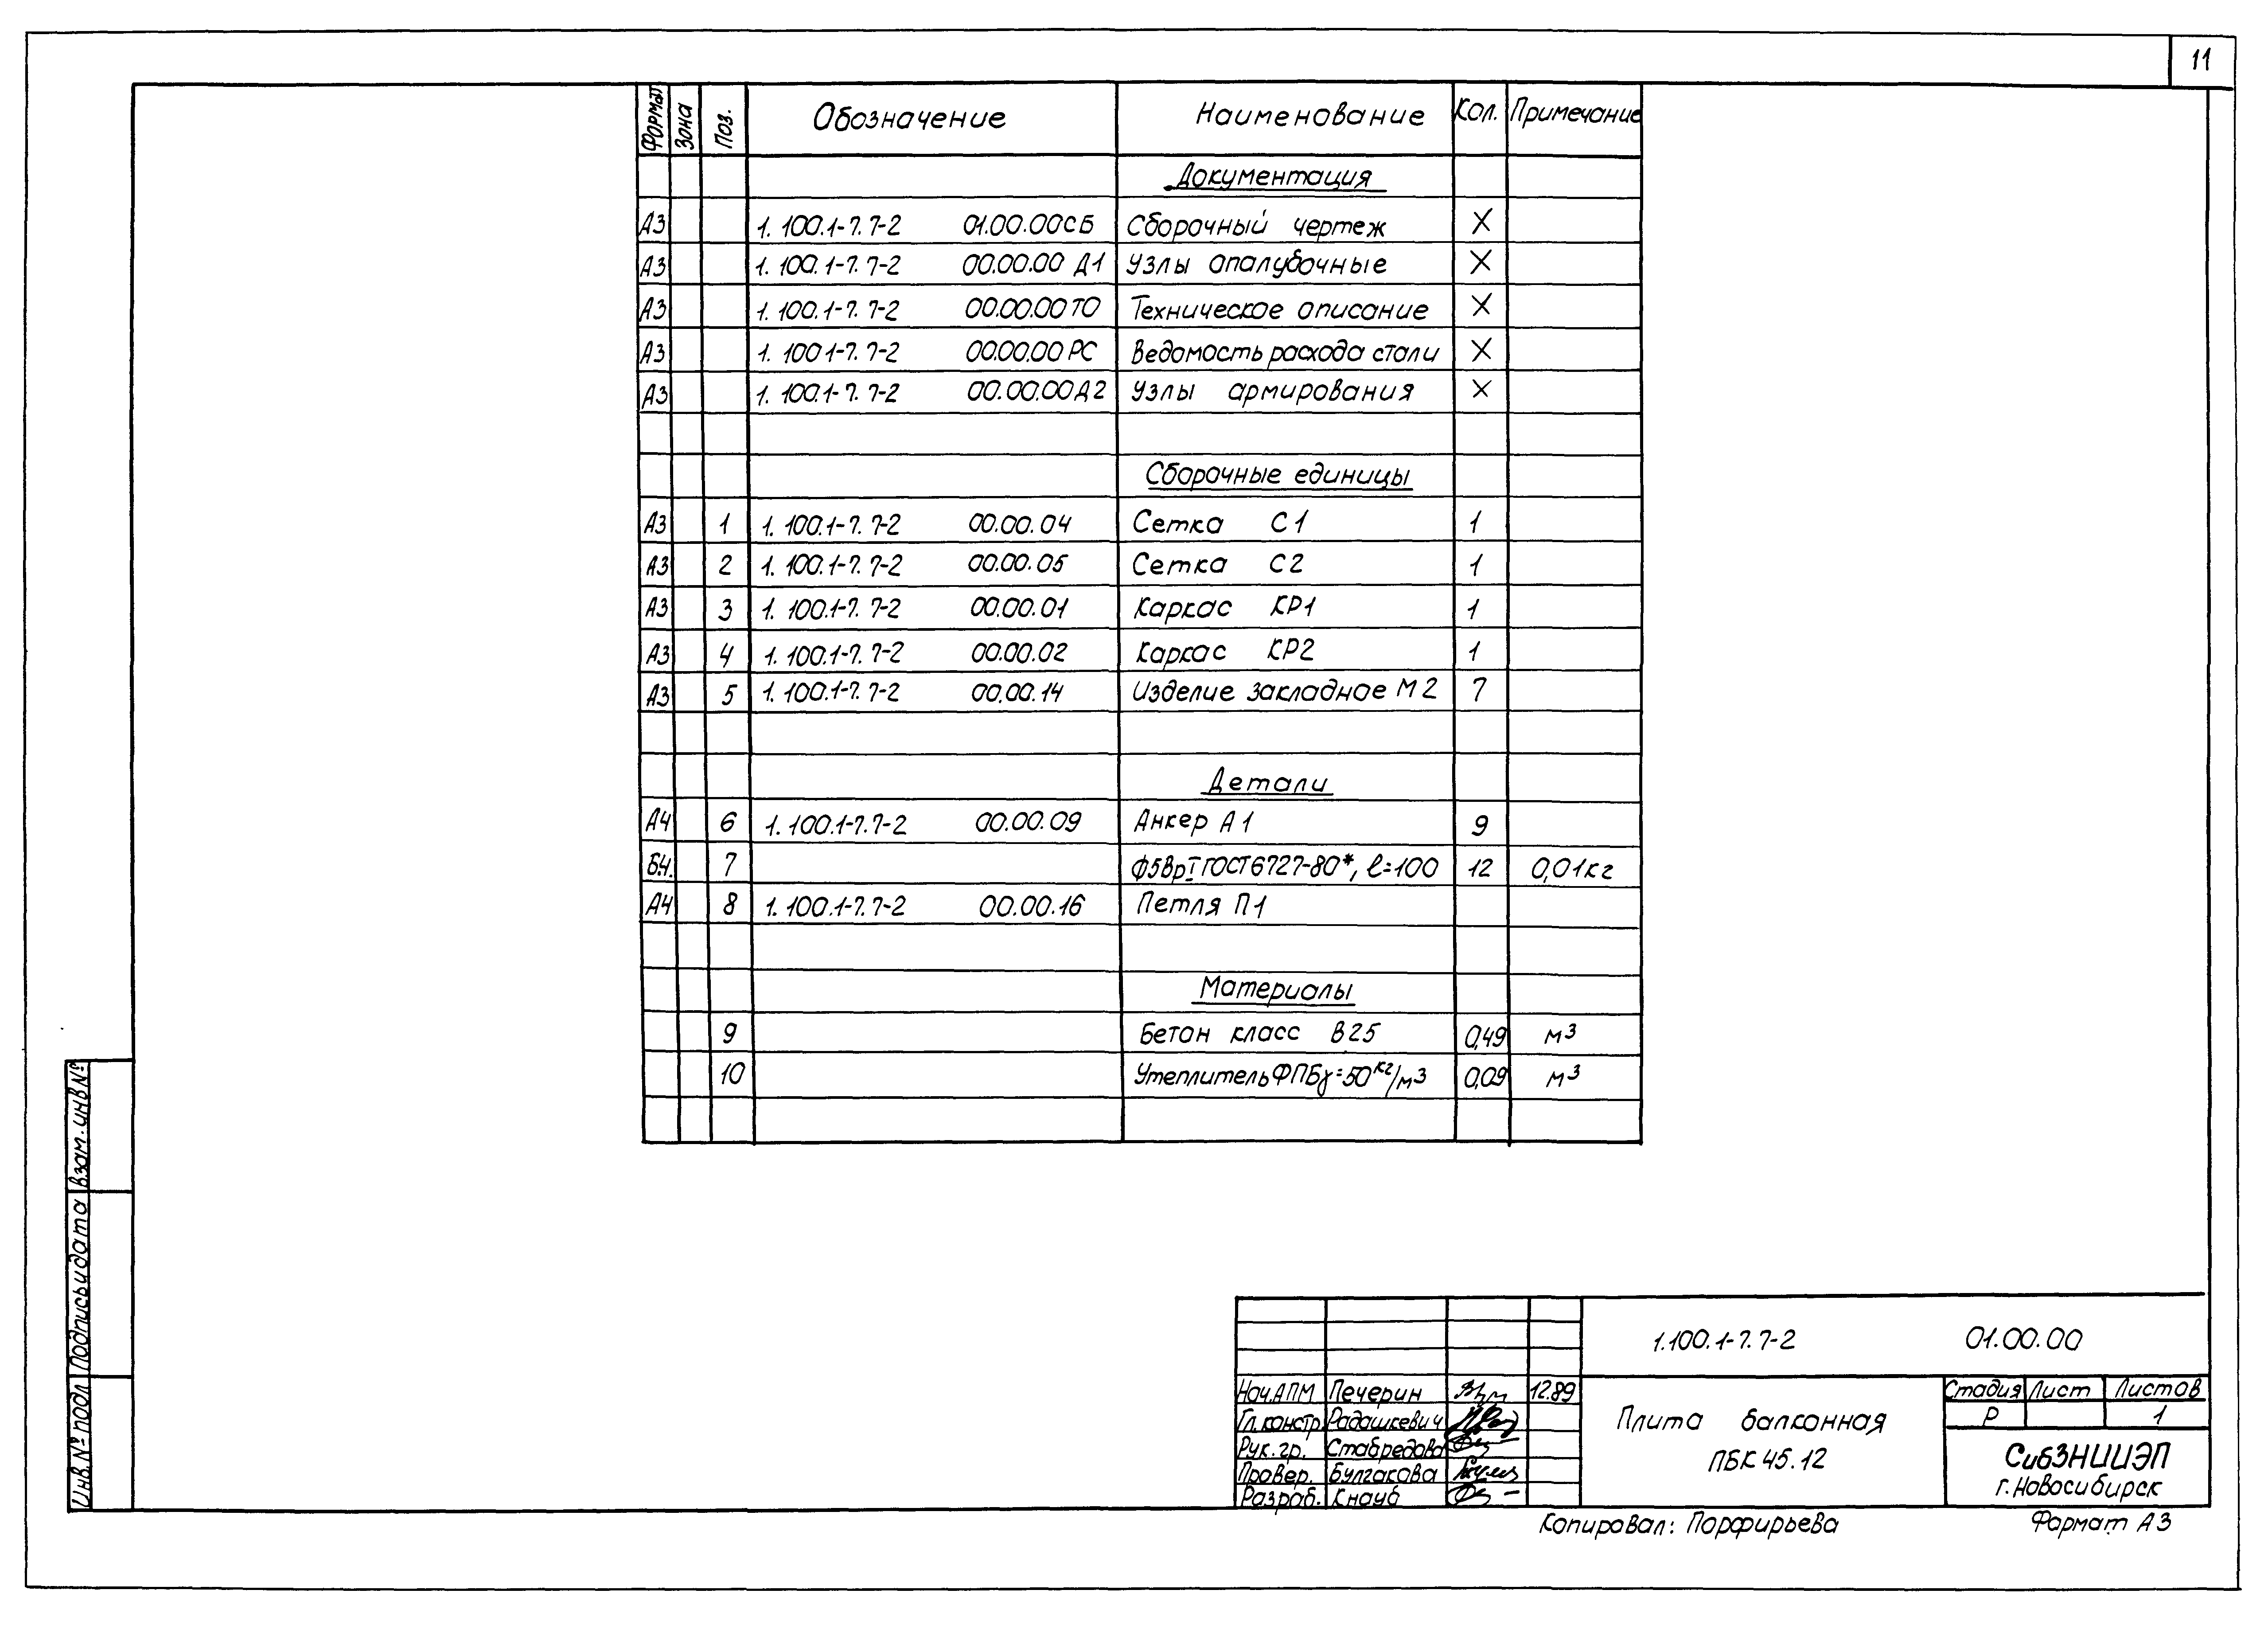 11
Формат Зона Поз. Обозначение Наименование Кол. Примечание
Документация
А3 1.100.1-7.7-2 01.00.00СБ Сборочный чертеж X
А3 1.100.1-7.7-2 00.00.00 Д1 Узлы опалубочные X
А3 1.100.1-7.7-2 00.00.00ТО Техническое описание X
А3 1.100 1-7.7-2 00.00.00 РС Ведомость расхода стали X
А3 1.100.1-7.7-2 00.00.00Д2 Узлы армирования X
Сборочные единицы
А3 1 1.100.1-7.7-2 00.00.04 Сетка С1 1
А3 2 1.100.1-7.7-2 00.00.05 Сетка С2 1
А3 3 1.100.1-7.7-2 00.00.01 Каркас КР1 1
А3 4 1.100.1-7.7-2 00.00.02 Каркас КР2 1
А3 5 1.100.1-7.7-2 00.00.14 Изделие закладное М2 7
Детали
А4 6 1.100.1-7.7-2 00.00.09 Анкер А1 9
Б.Ч. 7 Ф5ВрI ГОСТ6727-80*, ℓ=100 12 0,01кг
А4 8 1.100.1-7.7-2 00.00.16 Петля П1
Материалы
9 Бетон класс В25 0,49 м3
10 Утеплитель ФПБ γ=50кг/м3 0,09 м3
Взам. инв №
Подпись и дата
Инв. № подл
1.100.1-7.7-2 01.00.00
Нач.АПМ Печерин 12.89
Гл.констр. Радашкевич
Рук.гр. Стабредова
Провер. Булгакова
Разраб. Кнауб
Плита балконная
ПБК 45.12
Стадия Лист Листов
Р 1
СибЗНИИЭП
г.Новосибирск
Копировал: Порфирьева Формат А3